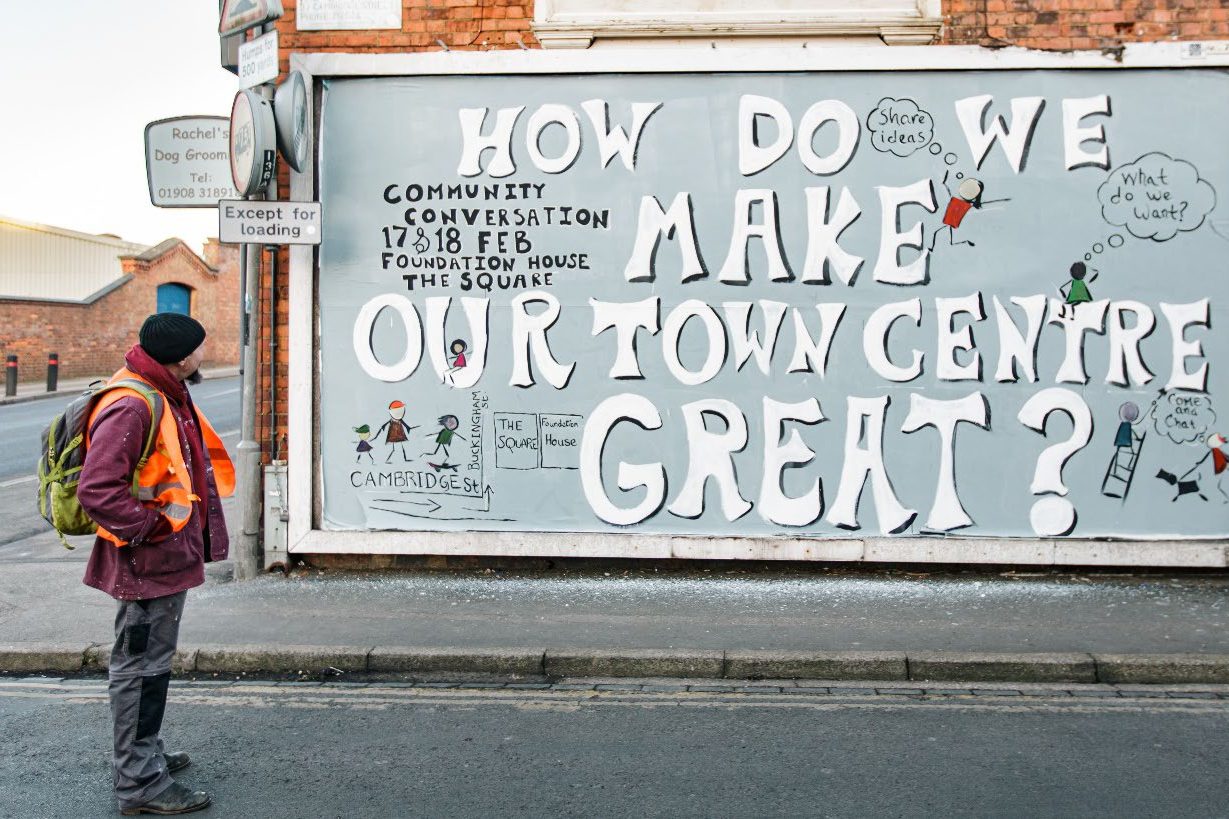 Humps for
500 yards
Rachel's
Dog Groom
Tel:
01908 318918
136
Except for
loading
HOW DO WE
MAKE
OUR TOWN CENTRE
GREAT?
COMMUNITY
CONVERSATION
17&18 FEB
FOUNDATION HOUSE
THE SQUARE
Share
ideas
What
do we
want?
Come
and
Chat
CAMBRIDGE St
BUCKINGHAM
St
THE
SQUARE
Foundation
House